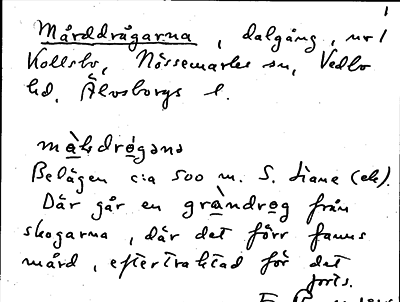 1
Mårddrågarna, dalgång, nv/
Kollsbo, Nössemarks sn, Vedbo
hd, Älvsborgs l.
Belägen c:a 500 m. S. Liane (ek).
Där går en gràndrog från
skogarna, där det förr fanns
mård, eftertraktad för det
forts.